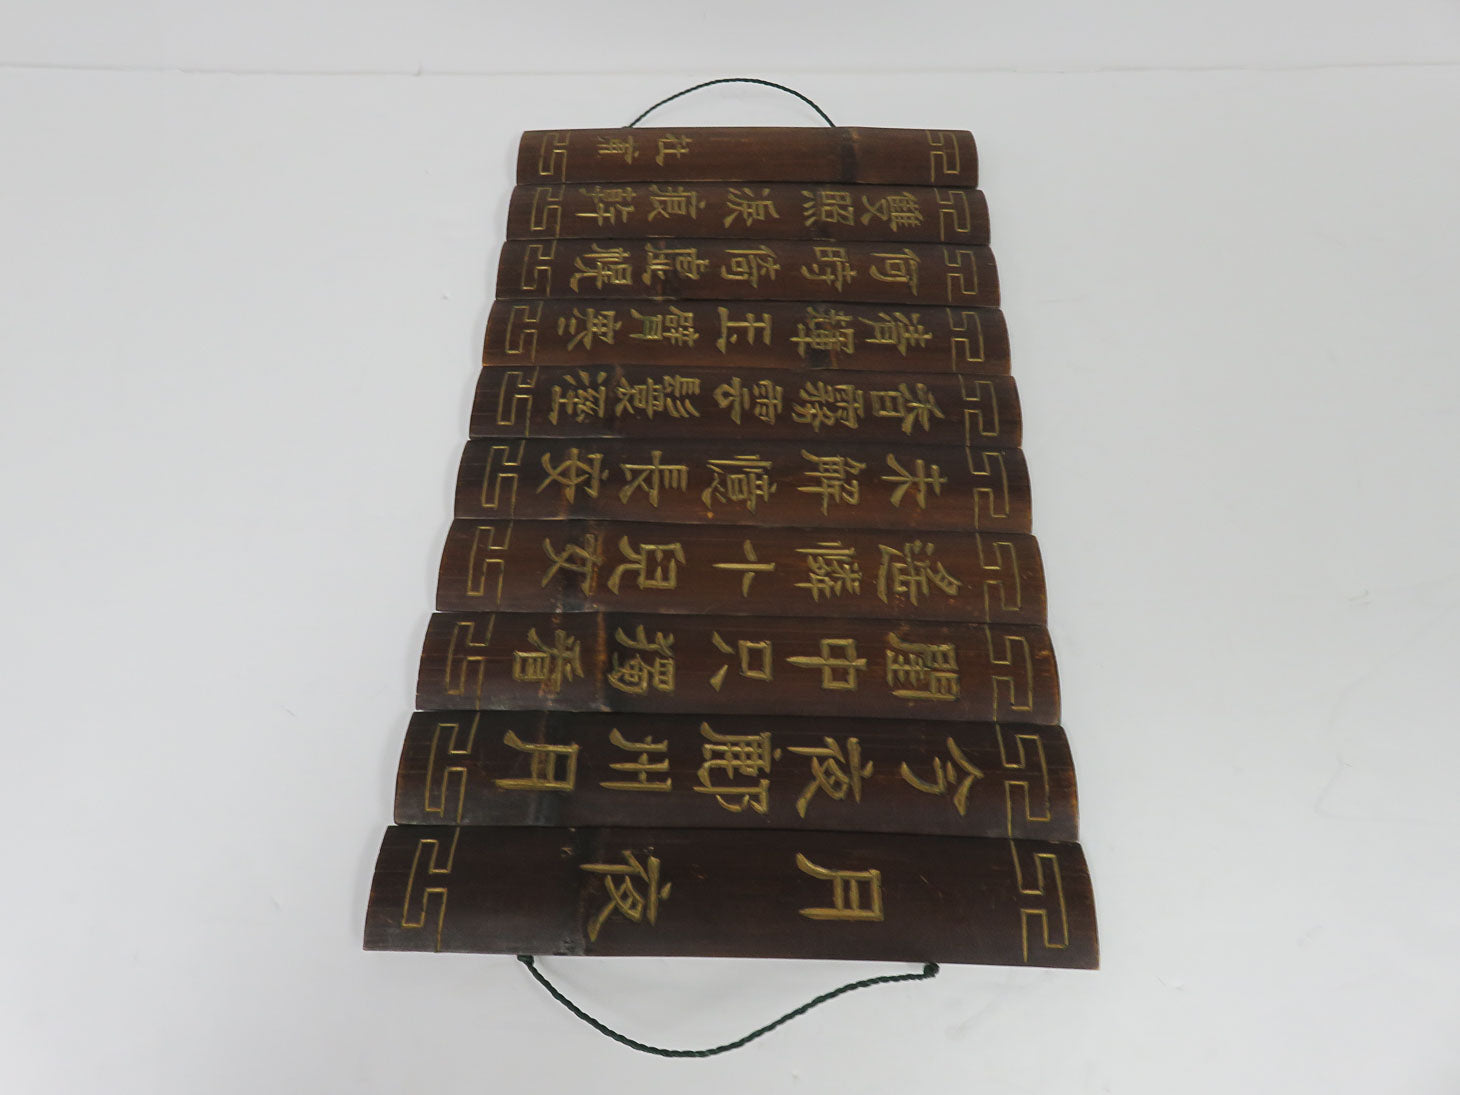 月夜
今夜鄜州月
閨中只獨看
遙憐小兒女
未解憶長安
香霧雲鬟溼
清輝玉臂寒
何時倚虛幌
雙照淚痕乾
杜甫